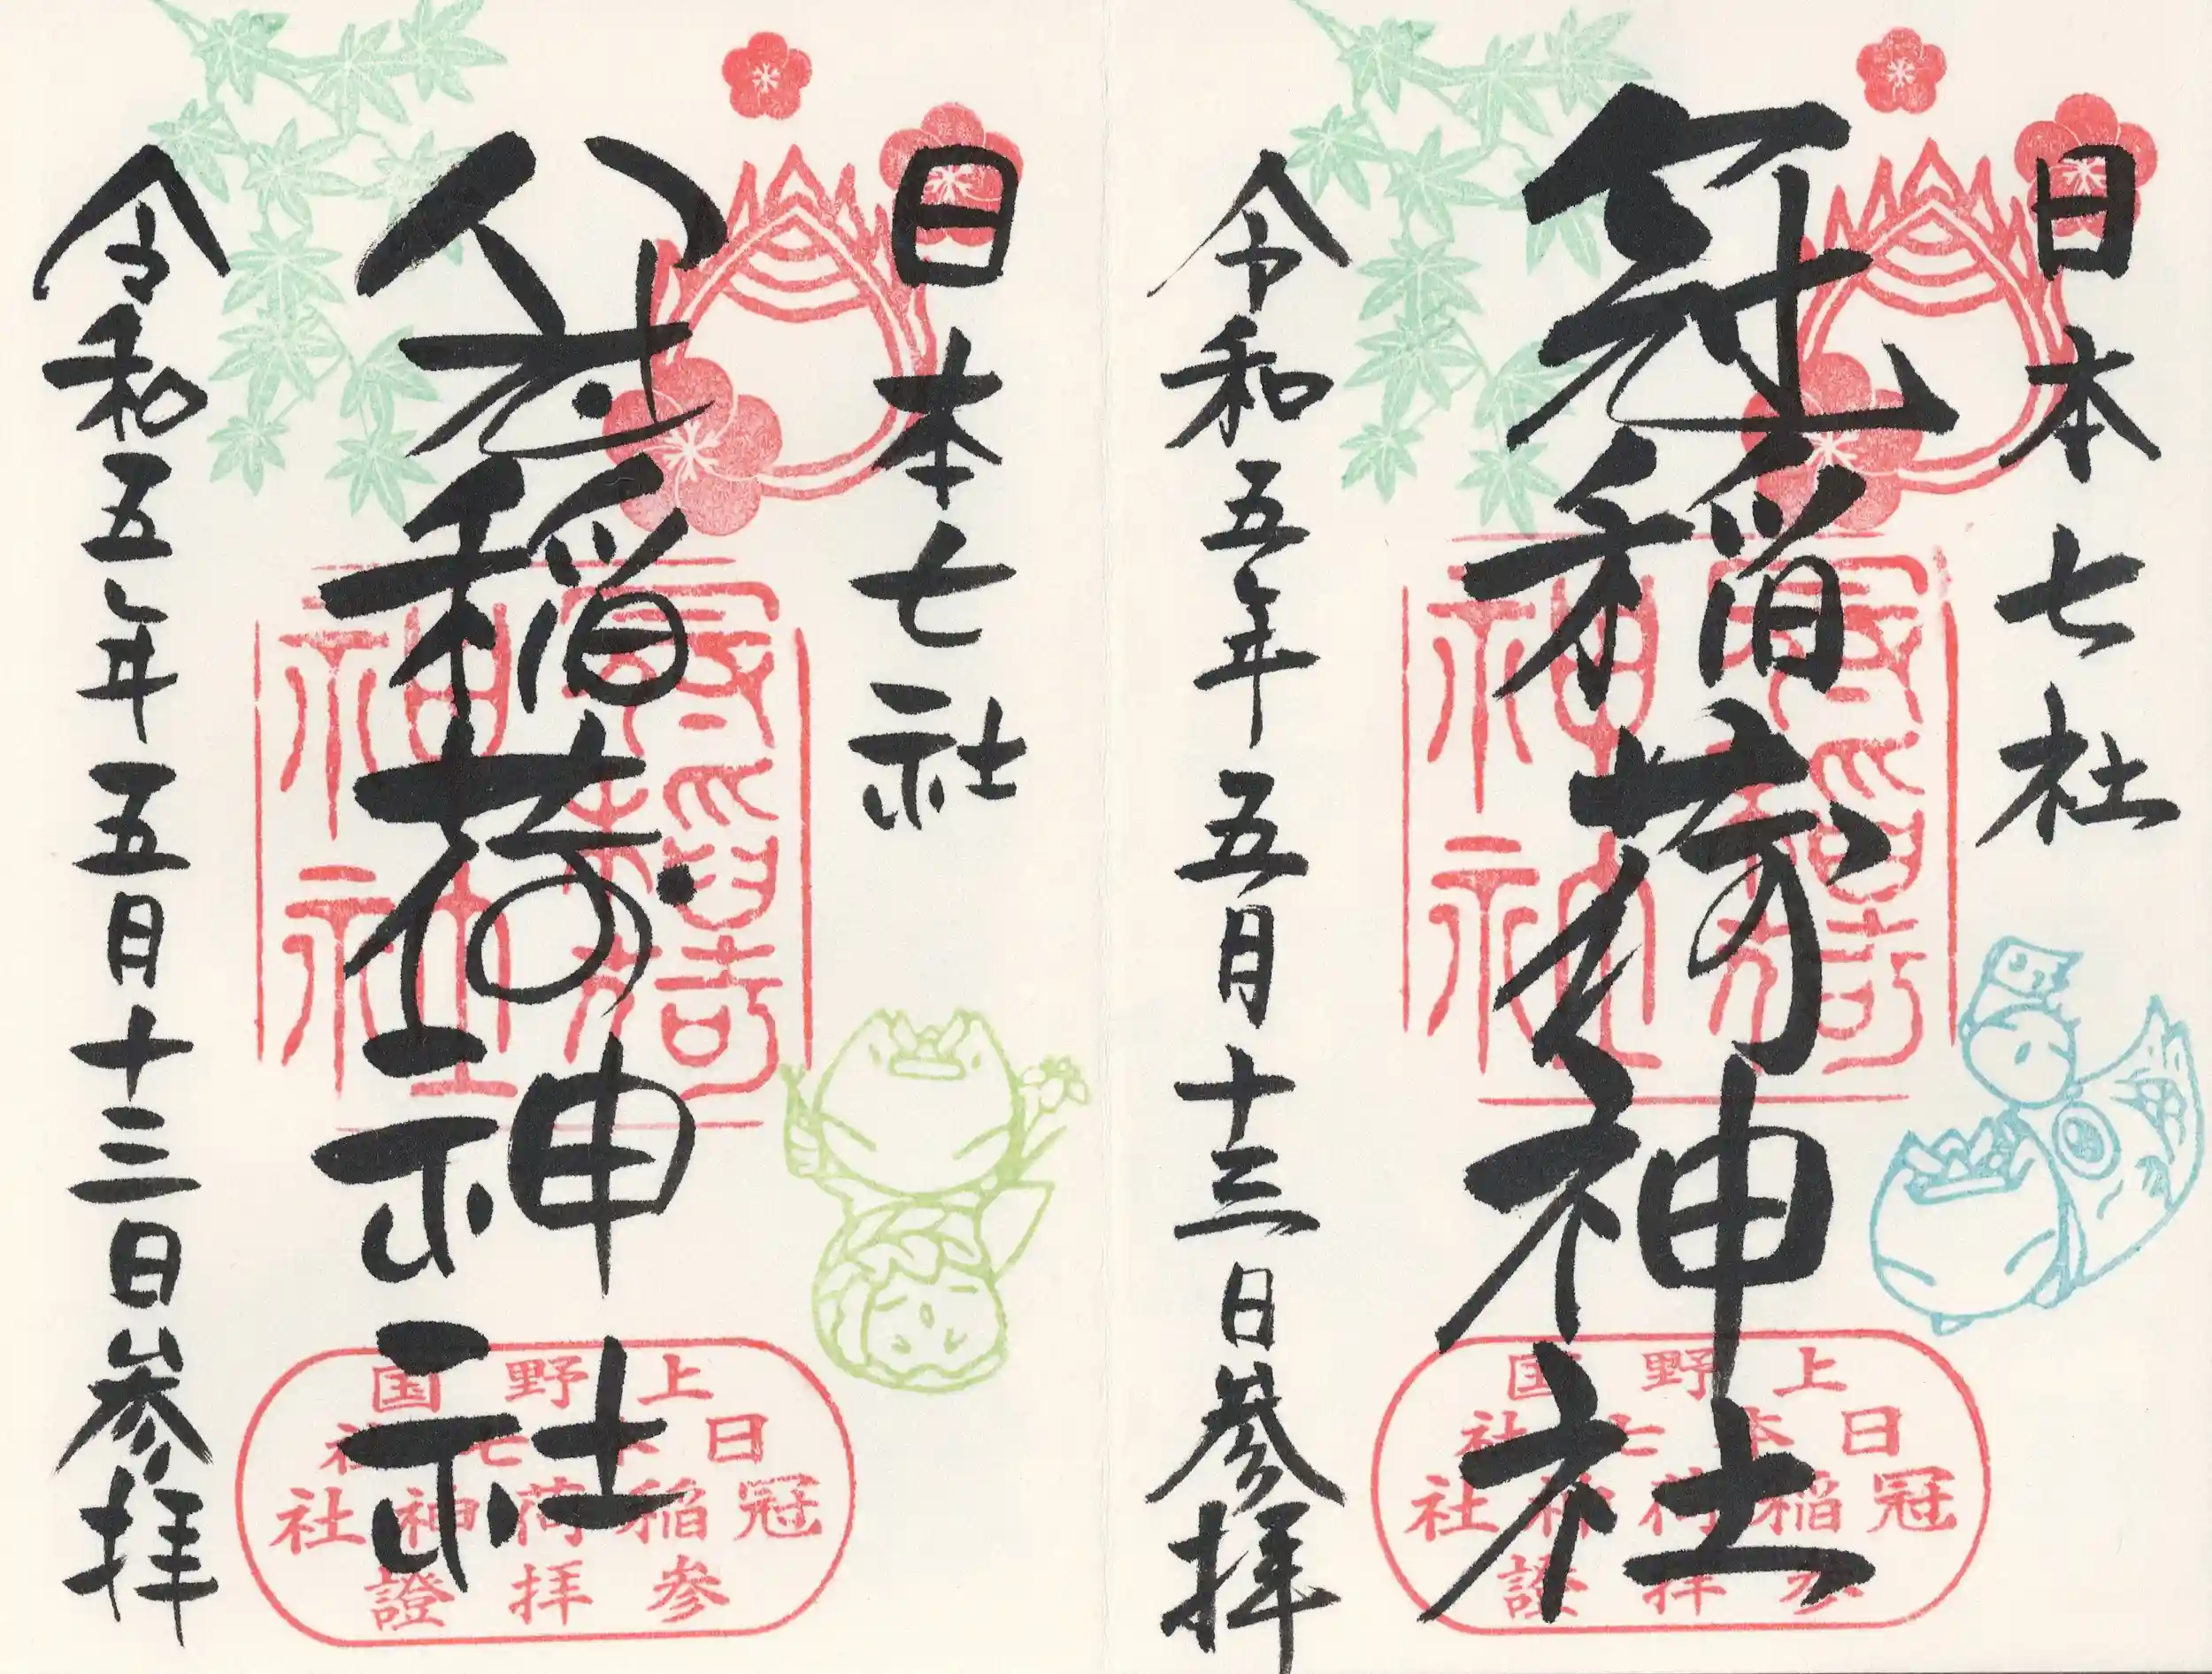 日本七社
冠稲荷神社
令和五年五月十三日参拝
冠稲荷
神社
上野国
日本七社
冠稲荷神社
参拝證
日本七社
冠稲荷神社
令和五年五月十三日参拝
冠稲荷
神社
上野国
日本七社
冠稲荷神社
参拝證